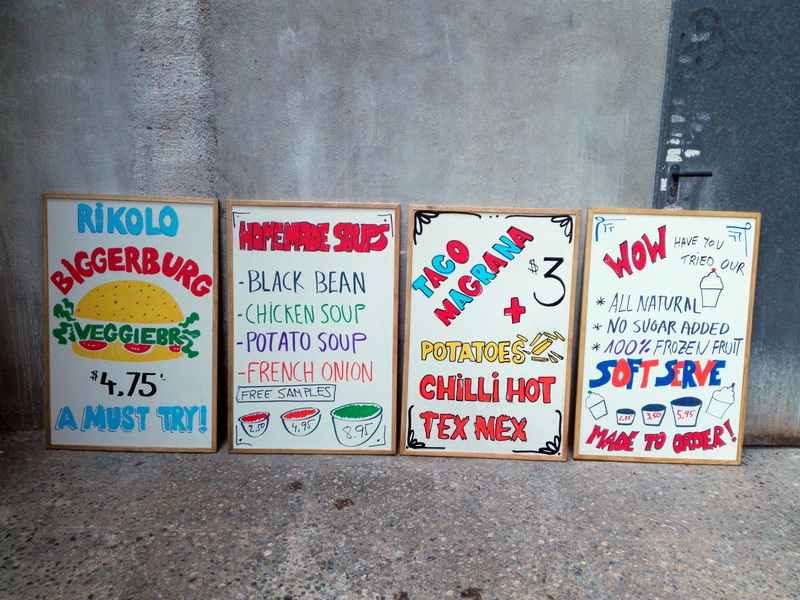 RiKOLO
BIGGERBURG
VEGGIEBR
$4,75
A MUST TRY!
HOMEMADE SOUPS
-BLACK BEAN
-CHICKEN SOUP
-POTATO SOUP
-FRENCH ONION
FREE SAMPLES
2.50 4,95 8.95
TACO
MAGRANA
$3
+
POTATOES
CHiLLi HOT
TEX MEX
WOW HAVE YOU
TRIED OUR
* ALL NATURAL
* NO SUGAR ADDED
* 100% FROZEN FRUIT
SOFT SERVE
1,75 3,50 5,95
MADE TO ORDER!